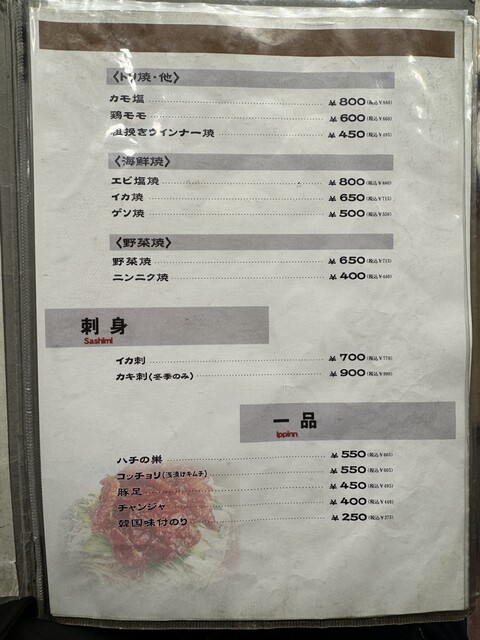 〈トリ焼・他〉
カモ塩 ¥800(税込¥880)
鶏モモ ¥600(税込¥660)
粗挽きウインナー焼 ¥450(税込¥495)
〈海鮮焼〉
エビ塩焼 ¥800(税込¥880)
イカ焼 ¥650(税込¥715)
ゲソ焼 ¥500(税込¥550)
〈野菜焼〉
野菜焼 ¥650(税込¥715)
ニンニク焼 ¥400(税込¥440)
刺身
Sashimi
イカ刺 ¥700(税込¥770)
カキ刺(冬季のみ) ¥900(税込¥990)
一品
Ippinn
ハチの巣 ¥550(税込¥605)
コッチョリ(浅漬けキムチ) ¥550(税込¥605)
豚足 ¥450(税込¥495)
チャンジャ ¥400(税込¥440)
韓国味付のり ¥250(税込¥275)